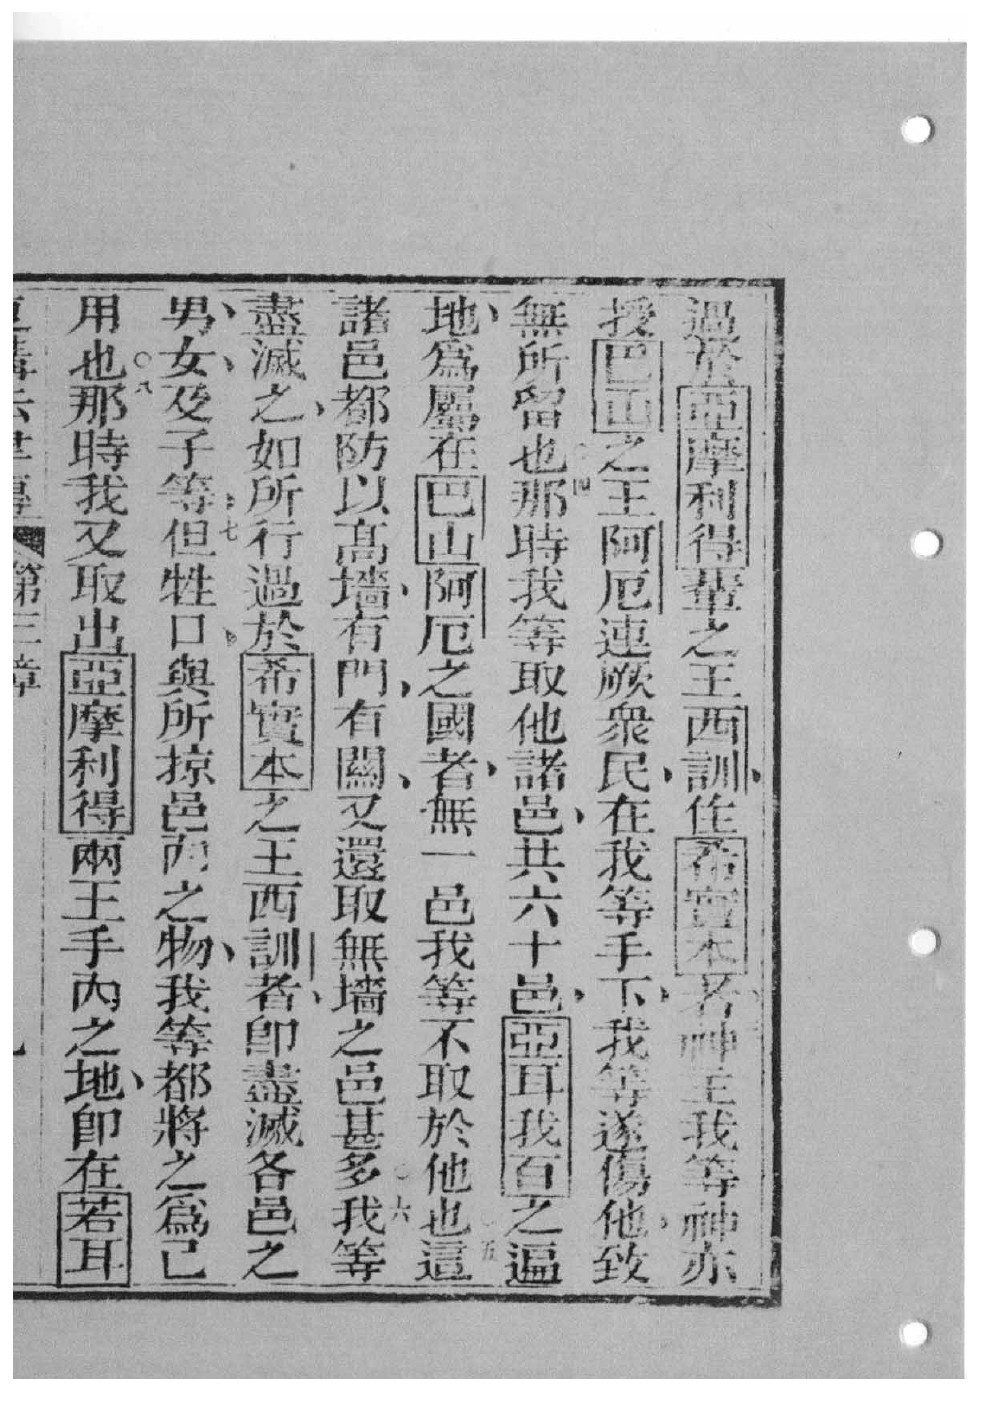 過於亞摩利得輩之王西訓住希實本者神主我等神亦
授巴山之王阿厄連厥衆民在我等手下我等遂傷他致
無所留也四那時我等取他諸邑共六十邑亞耳我百之遍
地爲屬在巴山阿厄之國者無一邑我等不取於他也五這
諸邑都防以高墻有門有關又還取無墻之邑甚多六我等
盡滅之如所行過於希實本之王西訓者卽盡滅各邑之
男女及子等七但牲口與所掠邑內之物我等都將之爲己
用也○八那時我又取出亞摩利得兩王手內之地卽在若耳
第三章